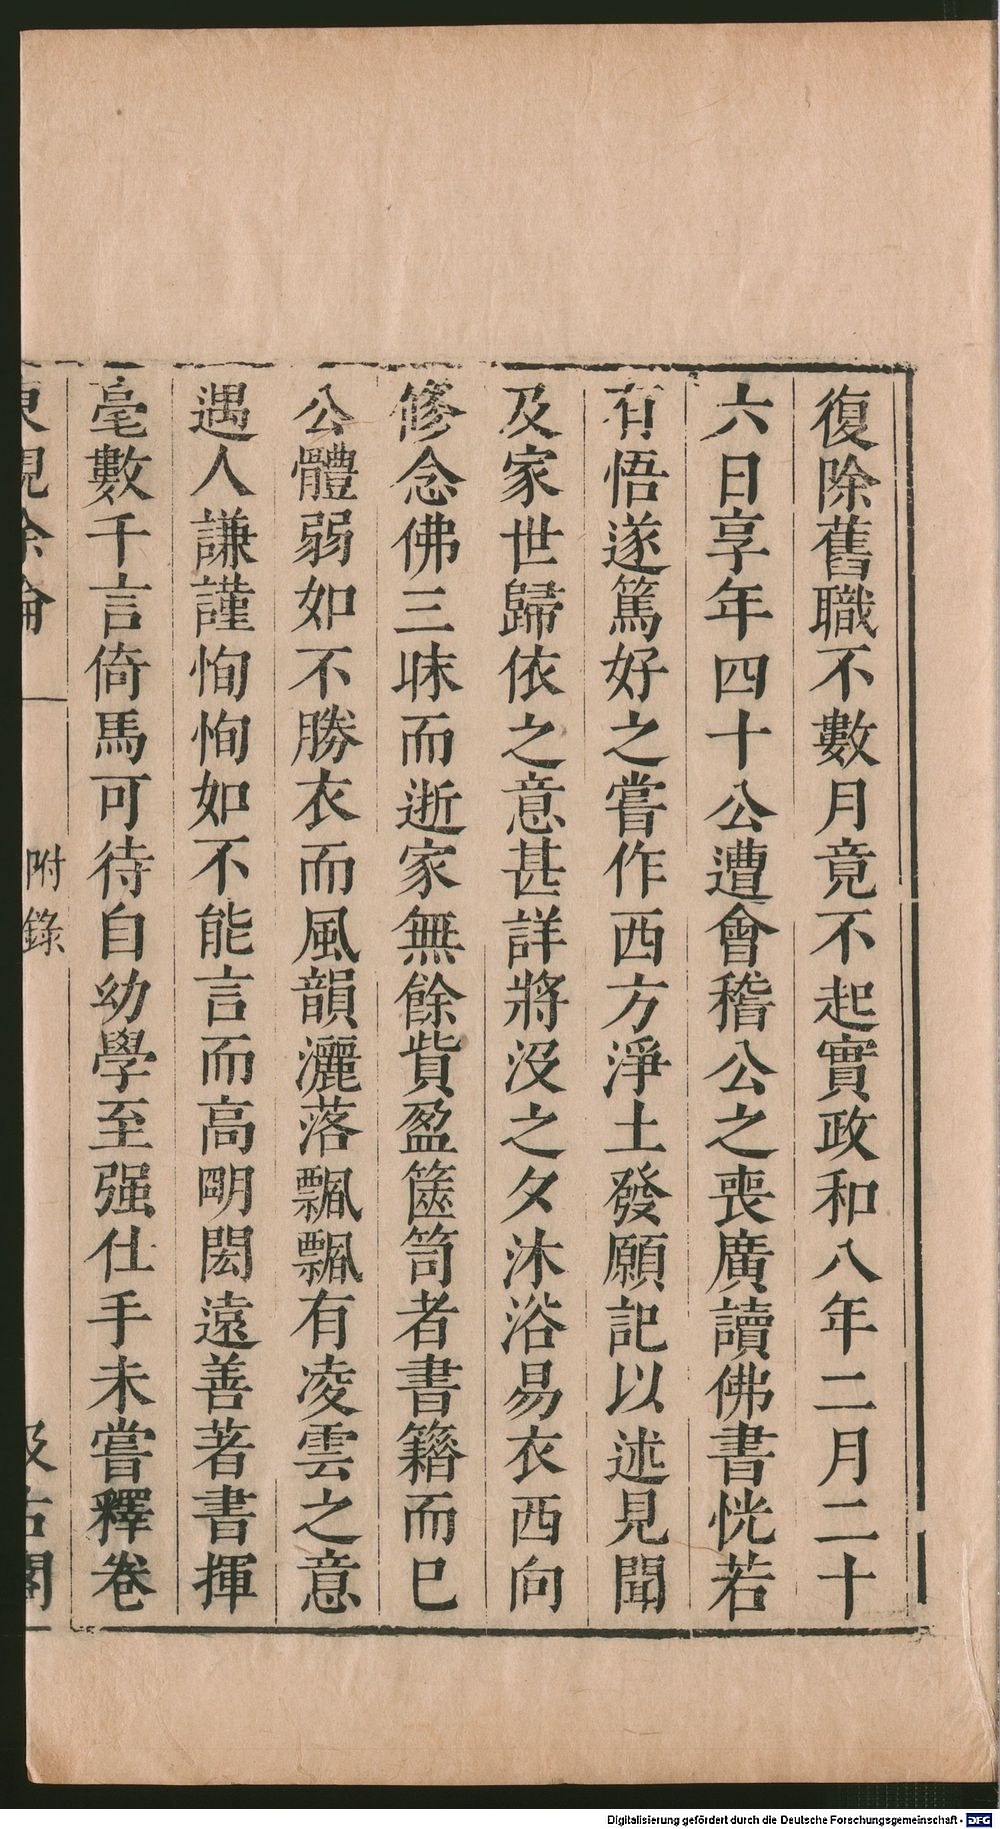 復除舊職不數月竟不起實政和八年二月二十
六日享年四十公遭會稽公之喪廣讀佛書恍若
有悟遂篤好之嘗作西方淨土發願記以述見聞
及家世歸依之意甚詳將沒之夕沐浴易衣西向
修念佛三昧而逝家無餘貲盈篋笥者書籍而已
公體弱如不勝衣而風韻灑落飄飄有凌雲之意
遇人謙謹恂恂如不能言而高明閎遠善著書揮
毫數千言倚馬可待自幼學至强仕手未嘗釋卷
東觀余論
附錄
汲古閣
Digitalisierung gefördert durch die Deutsche Forschungsgemeinschaft - DFG